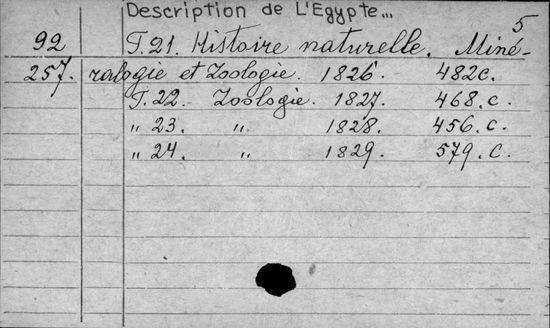 Description de L'Egypte...
5
92 T.21. Histoire naturelle. Miné-
257. ralogie et Zoologie. 1826. 482c.
T.22. Zoologie. 1827. 468.c.
„ 23. „ 1828. 456.c.
„ 24. „ 1829. 579.c.